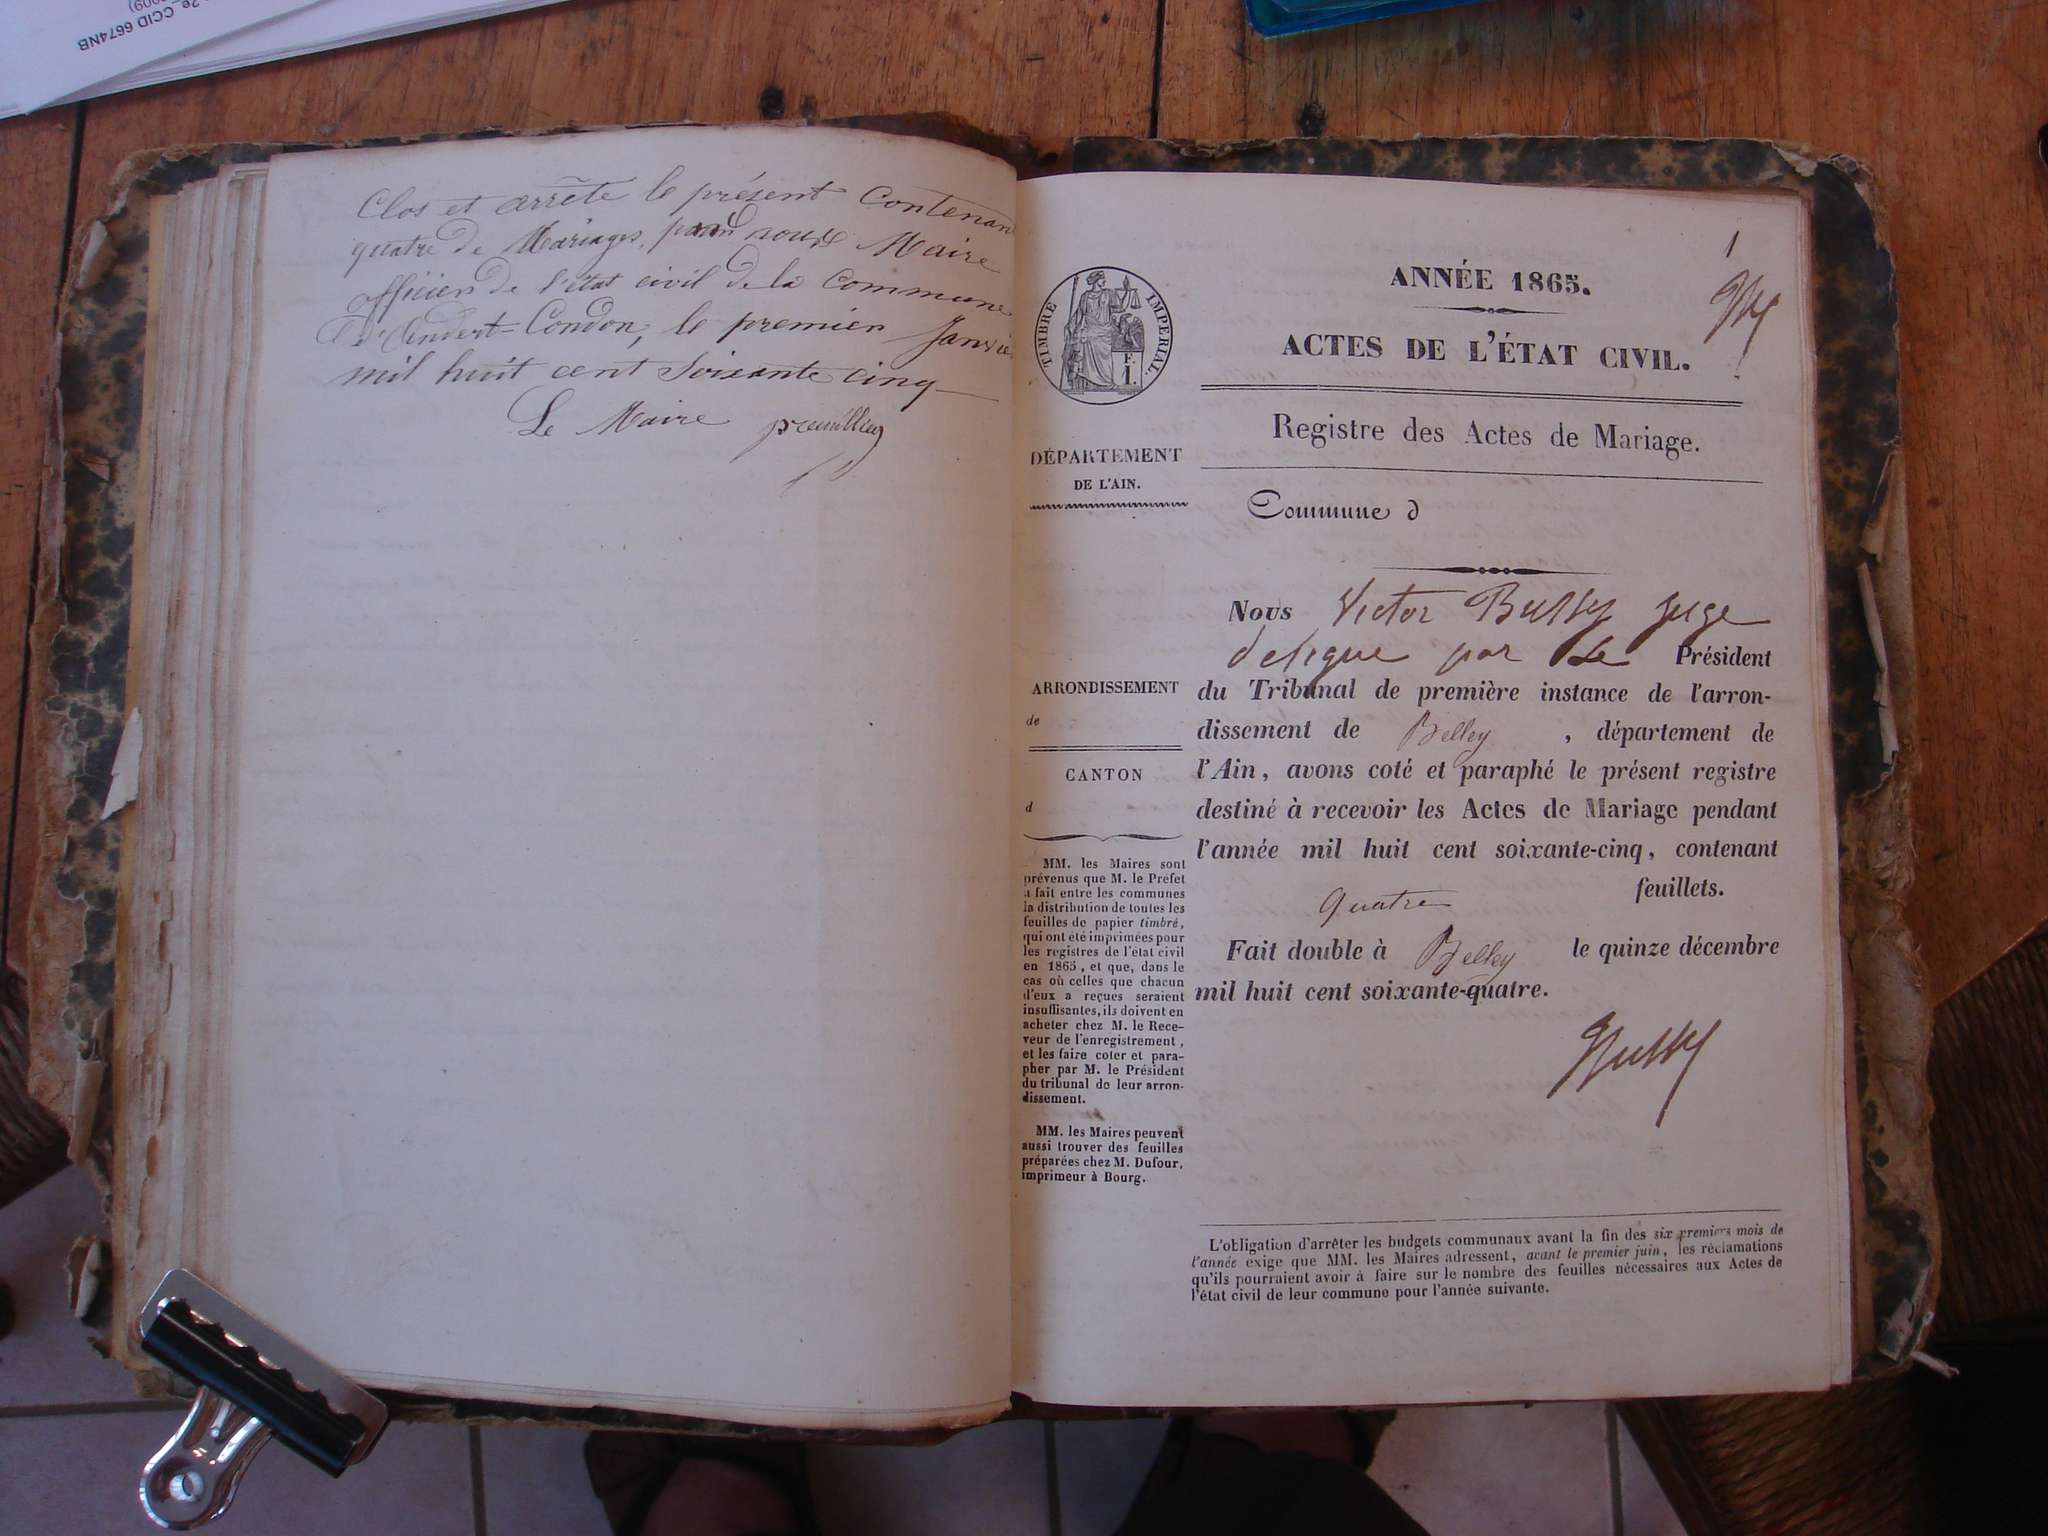 2e, CCID 6674NB
2009)
Clos et arrête le présent Contenan
quatre de Mariages, par nous Maire
officier de l'état civil de la Commune
d'Andert-Condon, le premier Janvie
mil huit cent soixante cinq
Le Maire
1
ANNÉE 1865.
ACTES DE L'ÉTAT CIVIL.
Registre des Actes de Mariage.
Commune d
TIMBRE IMPERIAL.
F.
1.
DÉPARTEMENT
DE L'AIN.
ARRONDISSEMENT
de
CANTON
d
MM. les Maires sont
prévenus que M. le Préfet
a fait entre les communes
la distribution de toutes les
feuilles de papier timbré,
qui ont été imprimées pour
les registres de l'état civil
en 1865, et que, dans le
cas où celles que chacun
d'eux a reçues seraient
insuffisantes, ils doivent en
acheter chez M. le Rece-
veur de l'enregistrement,
et les faire coter et para-
pher par M. le Président
du tribunal de leur arron-
dissement.
MM. les Maires peuvent
aussi trouver des feuilles
préparées chez M. Dufour,
imprimeur à Bourg.
Nous Victor Bussy Juge
delegue par Le Président
du Tribunal de première instance de l'arron-
dissement de Belley, département de
l'Ain, avons coté et paraphé le présent registre
destiné à recevoir les Actes de Mariage pendant
l'année mil huit cent soixante-cinq, contenant
quatre feuillets.
Fait double à Belley le quinze décembre
mil huit cent soixante-quatre.
Bussy
L'obligation d'arrêter les budgets communaux avant la fin des six premiers mois de
l'année exige que MM. les Maires adressent, avant le premier juin, les réclamations
qu'ils pourraient avoir à faire sur le nombre des feuilles nécessaires aux Actes de
l'état civil de leur commune pour l'année suivante.